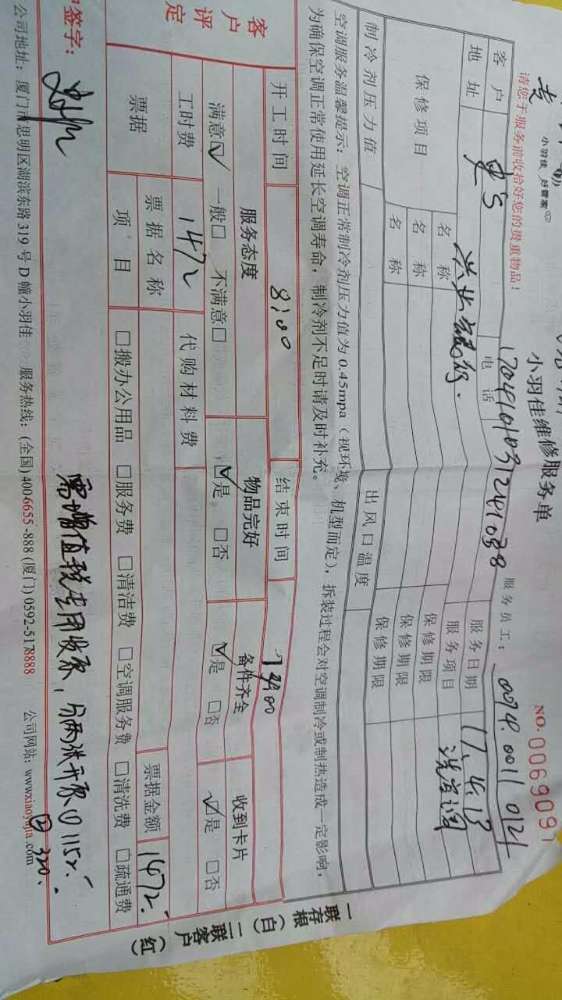 小羽佳 好管家
小羽佳维修服务单
NO. 0069091
请您于服务前收拾好您的贵重物品!
服务员工: 0094. 0011 0121
客户
电话
服务日期 17.4.13
地址
服务项目 洗空调
保修项目
名称
保修期限
名称
保修期限
名称
保修期限
制冷剂压力值
出风口温度
空调服务温馨提示:空调正常制冷剂压力值为0.45mpa(视环境、机型而定),拆装过程会对空调制冷或制热造成一定影响,
为确保空调正常使用延长空调寿命,制冷剂不足时请及时补充。
开工时间 8:00
结束时间
客户评定
服务态度
物品完好
备件齐全
收到卡片
满意☑ 一般□ 不满意□
☑是 □否
☑是 □否
☑是 □否
工时费 1472
代购材料费
票据
票据名称
票据金额 1472.
项目
□搬办公用品 □服务费 □清洁费 □空调服务费 □清洗费 □疏通费
需增值税专用发票,分两张开票①1152.
② 320.
签字:
公司地址:厦门市思明区湖滨东路319号D幢小羽佳 服务热线:(全国)400-6655-888 (厦门)0592-5178888 公司网站:www.xiaoyujia.com
一联存根(白) 二联客户(红)